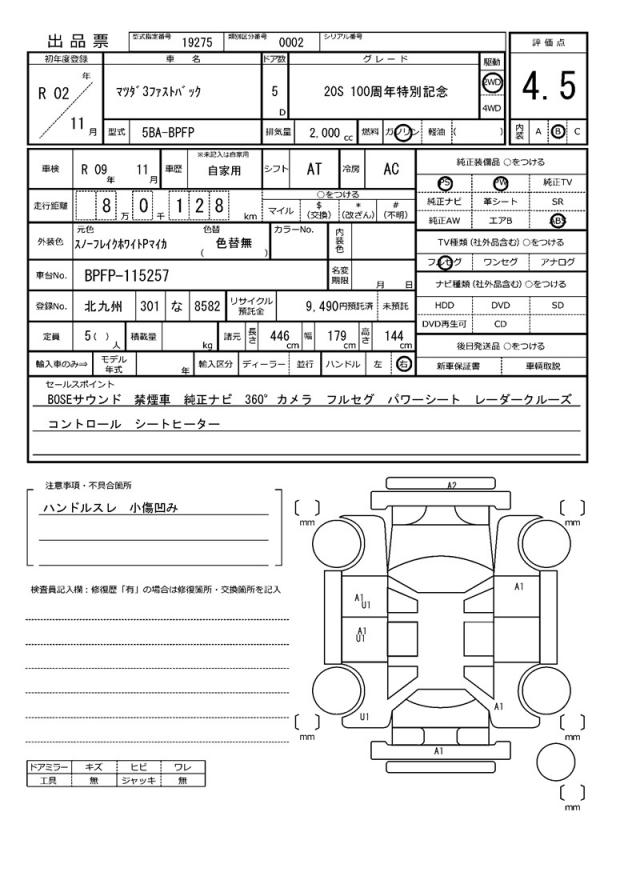 出品票 型式指定番号 19275 類別区分番号 0002 シリアル番号
初年度登録 車名 ドア数 グレード 駆動 評価点
R 02 年 11 月 ﾏﾂﾀﾞ3ﾌｧｽﾄﾊﾞｯｸ 5 D 20S 100周年特別記念 2WD 4WD 4.5
型式 5BA-BPFP 排気量 2,000 cc 燃料 ガソリン 軽油 ( ) 内装 A B C
車検 R 09 年 11 月 車歴 ※未記入は自家用 自家用 シフト AT 冷房 AC
純正装備品 ○をつける
PS PW 純正TV
純正ナビ 革シート SR
純正AW エアB ABS
走行距離 8 万 0 千 1 2 8 km ○をつける マイル $ (交換) * (改ざん) # (不明)
TV種類 (社外品含む) ○をつける
フルセグ ワンセグ アナログ
外装色 元色 ｽﾉｰﾌﾚｲｸﾎﾜｲﾄPﾏｲｶ 色替 ( 色替無 ) カラーNo. 内装色
車台No. BPFP-115257 名変期限 月 日
ナビ種類 (社外品含む) ○をつける
HDD DVD SD
DVD再生可 CD
登録No. 北九州 301 な 8582 リサイクル預託金 9,490円預託済 未預託
定員 5( ) 人 積載量 kg 諸元 長さ 446 cm 幅 179 cm 高さ 144 cm
後日発送品 ○をつける
新車保証書 車輌取説
輸入車のみ⇒ モデル年式 年 輸入区分 ディーラー 並行 ハンドル 左 右
セールスポイント
BOSEサウンド 禁煙車 純正ナビ 360°カメラ フルセグ パワーシート レーダークルーズ
コントロール シートヒーター
注意事項・不具合箇所
ハンドルスレ 小傷凹み
検査員記入欄：修復歴「有」の場合は修復箇所・交換箇所を記入
A2
mm mm
A1 U1 A1
A1 U1
U1 A1
mm mm
A1
mm
ドアミラー キズ ヒビ ワレ
工具 無 ジャッキ 無